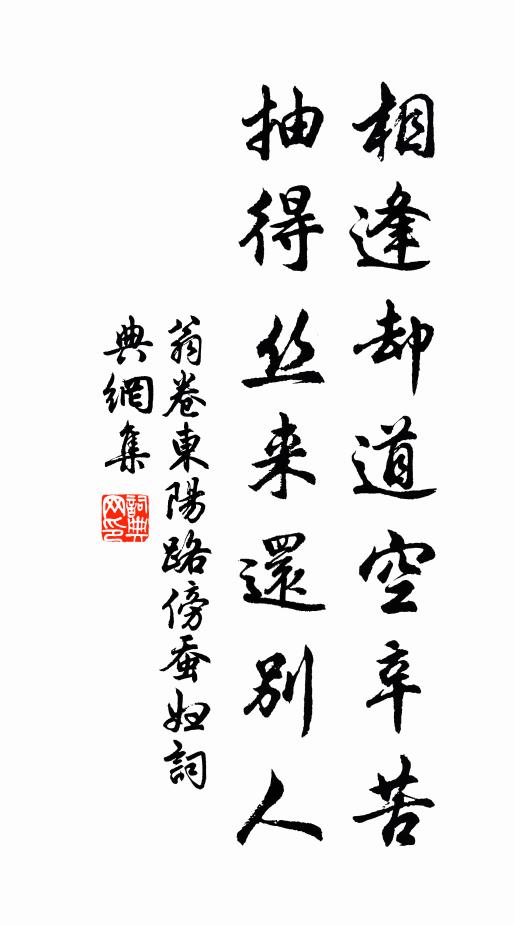 相逢却道空辛苦
抽得丝来還別人
翁卷東陽路傍蚕妇詞
典網集
詞典網印